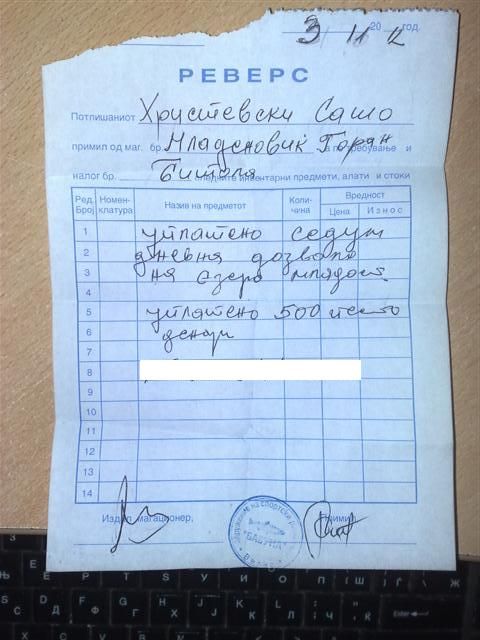 3 11 20 12 год.
РЕВЕРС
Потпишаниот Христевски Сашо
примил од маг. бр. Младеновиќ Горан за потребување и
налог бр. Битола следните инвентарни предмети, алати и стоки
Ред. Број Номен-клатура Назив на предметот Коли-чина Вредност
Цена Износ
1 уплатено седум
2 дневна дозвола
3 на езеро младост
4
5 уплатено 500 
6 денари
7
8
9
10
11
12
13
14
Издал магационер, Примил
Здружение на спортски "БАБУНА" Велес
Њ Е Р Т Ѕ У И О П Ш Ѓ
С Д Ф Г Х Ј К Л Ч Ќ Enter